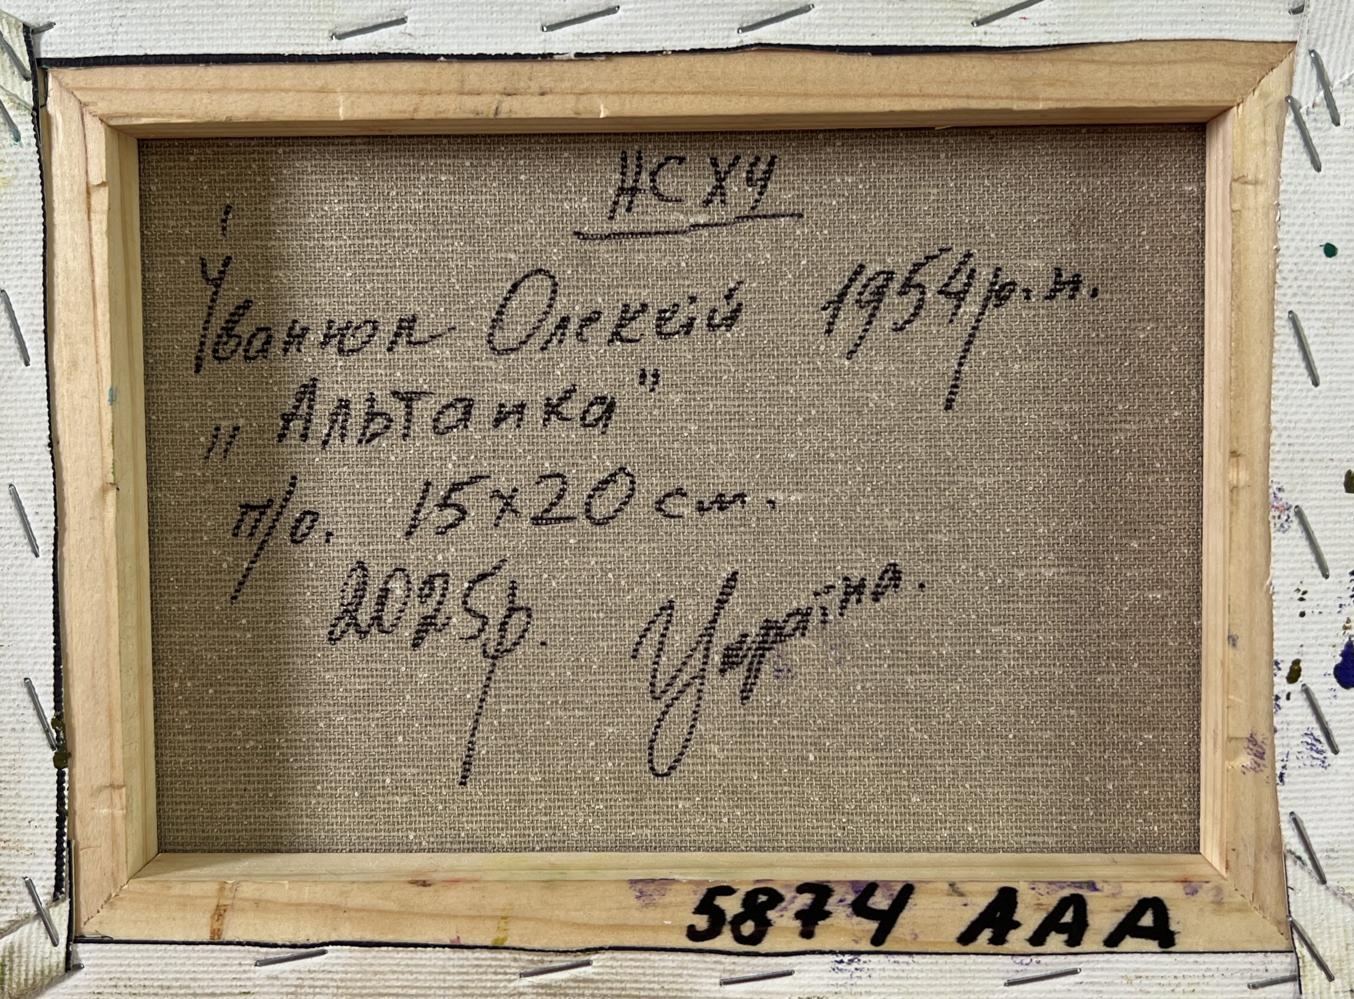 НСХУ
Іванюк Олексій 1954 р.н.
„Альтанка"
п/о. 15х20 см.
2025р. Україна.
5874 ААА